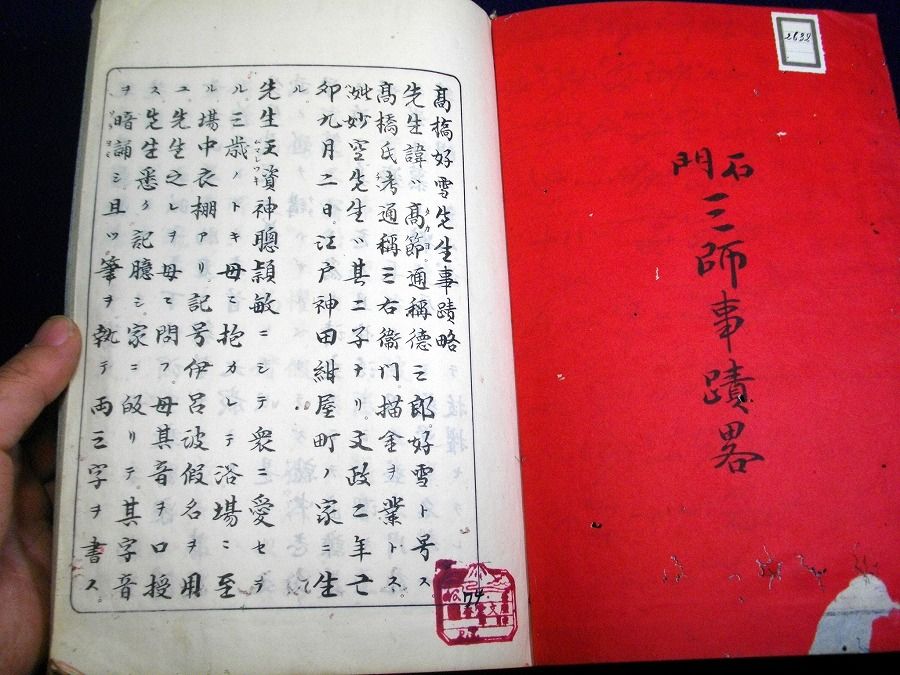 2632
石門
三師事蹟畧
高橋好雪先生事蹟略
先生諱ハ高節通稱德三郎好雪ト号ス
タカヨ
高橋氏考通稱三右衛门描金ヲ業トス
妣妙空先生ハ其二子ナリ文政二年己
卯九月二日江戸神田紺屋町ノ家ニ生
ル
先生天資神聰頴敏ニシテ衆ニ愛セラ
ムマレツキ
ル三歳ノトキ母ニ抱カレテ浴場ニ至
ル場中衣棚アリ記号伊呂波假名ヲ用
ユ先生之レヲ母ニ問フ母其音ヲ口授
ス先生悉ク記臆シ家ニ皈リテ其字音
ヲ暗誦シ且ツ筆ヲ執テ両三字ヲ書ス
74